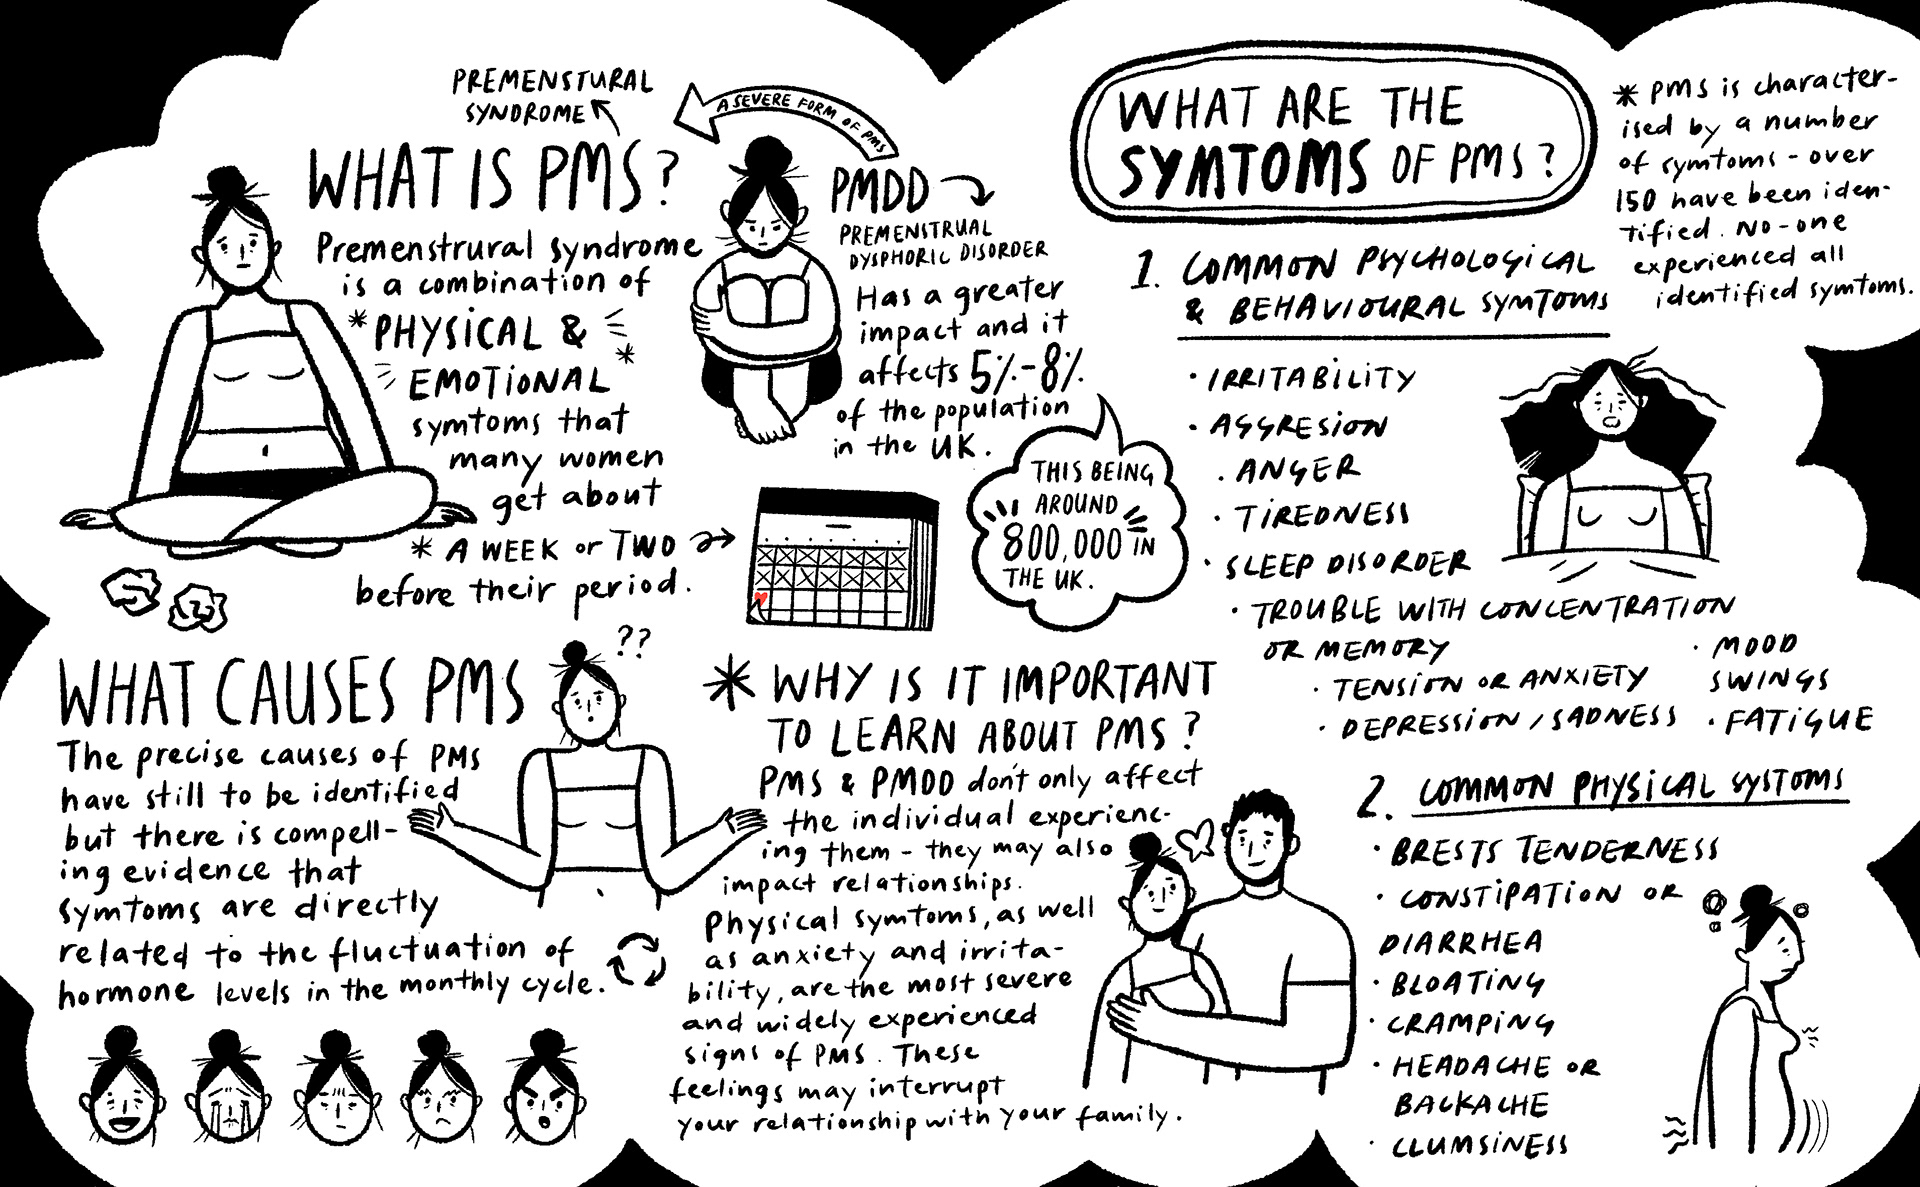 PREMENSTURAL
SYNDROME
WHAT IS PMS?
Premenstrural syndrome
is a combination of
* PHYSICAL &
EMOTIONAL *
symtoms that
many women
get about
* A WEEK or TWO
before their period.
A SEVERE FORM OF PMS
PMDD
PREMENSTRUAL
DYSPHORIC DISORDER
Has a greater
impact and it
affects 5%-8%
of the population
in the UK.
THIS BEING
AROUND
800,000 IN
THE UK.
WHAT CAUSES PMS
??
The precise causes of PMS
have still to be identified
but there is compell-
ing evidence that
symtoms are directly
related to the fluctuation of
hormone levels in the monthly cycle.
* WHY IS IT IMPORTANT
TO LEARN ABOUT PMS?
PMS & PMDD don't only affect
the individual experienc-
ing them - they may also
impact relationships.
Physical symtoms, as well
as anxiety and irrita-
bility, are the most severe
and widely experienced
signs of PMS. These
feelings may interrupt
your relationship with your family.
WHAT ARE THE
SYMTOMS OF PMS?
* PMS is character-
ised by a number
of symtoms - over
150 have been iden-
tified. No-one
experienced all
identified symtoms.
1. COMMON PSYCHOLOGICAL
& BEHAVIOURAL SYMTOMS
· IRRITABILITY
· AGGRESION
· ANGER
· TIREDNESS
· SLEEP DISORDER
· TROUBLE WITH CONCENTRATION
OR MEMORY
· TENSION OR ANXIETY
· DEPRESSION / SADNESS
· MOOD
SWINGS
· FATIGUE
2. COMMON PHYSICAL SYSTOMS
· BRESTS TENDERNESS
· CONSTIPATION OR
DIARRHEA
· BLOATING
· CRAMPING
· HEADACHE OR
BACKACHE
· CLUMSINESS